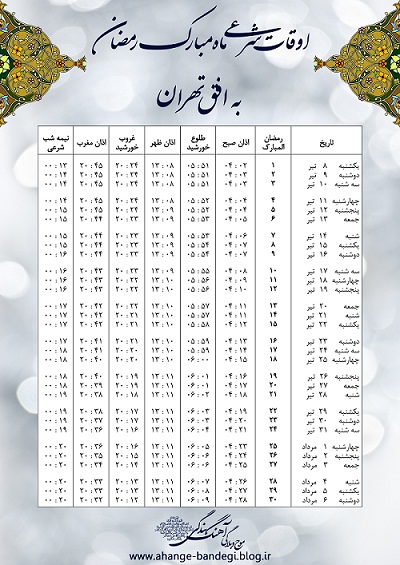 اوقات شرعی ماه مبارک رمضان
به افق تهران
تاریخ رمضان المبارک اذان صبح طلوع خورشید اذان ظهر غروب خورشید اذان مغرب نیمه شب شرعی
یکشنبه ۸ تیر ۱ ۰۴:۰۲ ۰۵:۵۱ ۱۳:۰۸ ۲۰:۲۴ ۲۰:۴۵ ۰۰:۱۳
دوشنبه ۹ تیر ۲ ۰۴:۰۳ ۰۵:۵۱ ۱۳:۰۸ ۲۰:۲۴ ۲۰:۴۵ ۰۰:۱۴
سه شنبه ۱۰ تیر ۳ ۰۴:۰۳ ۰۵:۵۱ ۱۳:۰۸ ۲۰:۲۴ ۲۰:۴۵ ۰۰:۱۴
چهارشنبه ۱۱ تیر ۴ ۰۴:۰۴ ۰۵:۵۲ ۱۳:۰۸ ۲۰:۲۴ ۲۰:۴۵ ۰۰:۱۴
پنجشنبه ۱۲ تیر ۵ ۰۴:۰۴ ۰۵:۵۲ ۱۳:۰۹ ۲۰:۲۴ ۲۰:۴۵ ۰۰:۱۵
جمعه ۱۳ تیر ۶ ۰۴:۰۵ ۰۵:۵۳ ۱۳:۰۹ ۲۰:۲۴ ۲۰:۴۴ ۰۰:۱۵
شنبه ۱۴ تیر ۷ ۰۴:۰۶ ۰۵:۵۳ ۱۳:۰۹ ۲۰:۲۳ ۲۰:۴۴ ۰۰:۱۵
یکشنبه ۱۵ تیر ۸ ۰۴:۰۷ ۰۵:۵۴ ۱۳:۰۹ ۲۰:۲۳ ۲۰:۴۴ ۰۰:۱۵
دوشنبه ۱۶ تیر ۹ ۰۴:۰۷ ۰۵:۵۴ ۱۳:۰۹ ۲۰:۲۳ ۲۰:۴۴ ۰۰:۱۶
سه شنبه ۱۷ تیر ۱۰ ۰۴:۰۸ ۰۵:۵۵ ۱۳:۰۹ ۲۰:۲۳ ۲۰:۴۳ ۰۰:۱۶
چهارشنبه ۱۸ تیر ۱۱ ۰۴:۰۹ ۰۵:۵۶ ۱۳:۱۰ ۲۰:۲۲ ۲۰:۴۳ ۰۰:۱۶
پنجشنبه ۱۹ تیر ۱۲ ۰۴:۱۰ ۰۵:۵۶ ۱۳:۱۰ ۲۰:۲۲ ۲۰:۴۳ ۰۰:۱۶
جمعه ۲۰ تیر ۱۳ ۰۴:۱۱ ۰۵:۵۷ ۱۳:۱۰ ۲۰:۲۲ ۲۰:۴۲ ۰۰:۱۷
شنبه ۲۱ تیر ۱۴ ۰۴:۱۱ ۰۵:۵۷ ۱۳:۱۰ ۲۰:۲۲ ۲۰:۴۲ ۰۰:۱۷
یکشنبه ۲۲ تیر ۱۵ ۰۴:۱۲ ۰۵:۵۸ ۱۳:۱۰ ۲۰:۲۱ ۲۰:۴۲ ۰۰:۱۷
دوشنبه ۲۳ تیر ۱۶ ۰۴:۱۳ ۰۵:۵۹ ۱۳:۱۰ ۲۰:۲۱ ۲۰:۴۱ ۰۰:۱۷
سه شنبه ۲۴ تیر ۱۷ ۰۴:۱۴ ۰۵:۵۹ ۱۳:۱۰ ۲۰:۲۰ ۲۰:۴۱ ۰۰:۱۸
چهارشنبه ۲۵ تیر ۱۸ ۰۴:۱۵ ۰۶:۰۰ ۱۳:۱۰ ۲۰:۲۰ ۲۰:۴۰ ۰۰:۱۸
پنجشنبه ۲۶ تیر ۱۹ ۰۴:۱۶ ۰۶:۰۱ ۱۳:۱۱ ۲۰:۱۹ ۲۰:۴۰ ۰۰:۱۸
جمعه ۲۷ تیر ۲۰ ۰۴:۱۷ ۰۶:۰۱ ۱۳:۱۱ ۲۰:۱۹ ۲۰:۳۹ ۰۰:۱۸
شنبه ۲۸ تیر ۲۱ ۰۴:۱۸ ۰۶:۰۲ ۱۳:۱۱ ۲۰:۱۸ ۲۰:۳۸ ۰۰:۱۹
یکشنبه ۲۹ تیر ۲۲ ۰۴:۱۹ ۰۶:۰۳ ۱۳:۱۱ ۲۰:۱۷ ۲۰:۳۸ ۰۰:۱۹
دوشنبه ۳۰ تیر ۲۳ ۰۴:۲۰ ۰۶:۰۳ ۱۳:۱۱ ۲۰:۱۷ ۲۰:۳۷ ۰۰:۱۹
سه شنبه ۳۱ تیر ۲۴ ۰۴:۲۱ ۰۶:۰۴ ۱۳:۱۱ ۲۰:۱۶ ۲۰:۳۶ ۰۰:۱۹
چهارشنبه ۱ مرداد ۲۵ ۰۴:۲۳ ۰۶:۰۵ ۱۳:۱۱ ۲۰:۱۶ ۲۰:۳۶ ۰۰:۲۰
پنجشنبه ۲ مرداد ۲۶ ۰۴:۲۴ ۰۶:۰۶ ۱۳:۱۱ ۲۰:۱۵ ۲۰:۳۵ ۰۰:۲۰
جمعه ۳ مرداد ۲۷ ۰۴:۲۵ ۰۶:۰۶ ۱۳:۱۱ ۲۰:۱۴ ۲۰:۳۴ ۰۰:۲۰
شنبه ۴ مرداد ۲۸ ۰۴:۲۶ ۰۶:۰۷ ۱۳:۱۱ ۲۰:۱۳ ۲۰:۳۳ ۰۰:۲۰
یکشنبه ۵ مرداد ۲۹ ۰۴:۲۷ ۰۶:۰۸ ۱۳:۱۱ ۲۰:۱۳ ۲۰:۳۳ ۰۰:۲۰
دوشنبه ۶ مرداد ۳۰ ۰۴:۲۸ ۰۶:۰۹ ۱۳:۱۱ ۲۰:۱۲ ۲۰:۳۲ ۰۰:۲۰
آهنگ بندگی
www.ahange-bandegi.blog.ir